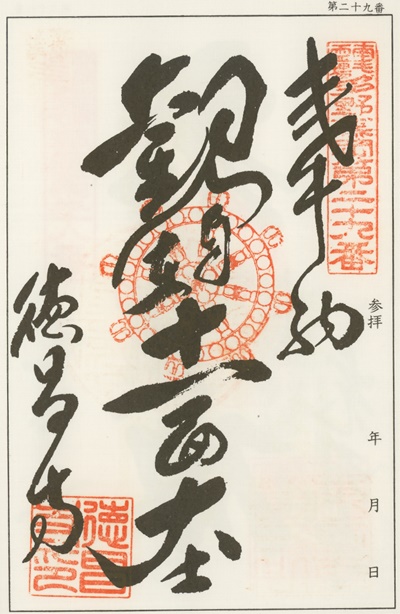 第二十九番
第二十九番
奉納
参拝　年　月　日
観音十一面大士
徳昌寺
徳昌寺印